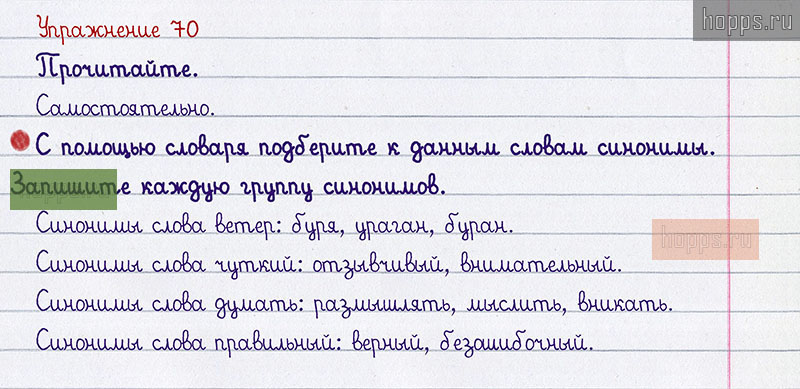 hopps.ru
Упражнение 70
Прочитайте.
Самостоятельно.
С помощью словаря подберите к данным словам синонимы.
Запишите каждую группу синонимов.
Синонимы слова ветер: буря, ураган, буран.
hopps.ru
Синонимы слова чуткий: отзывчивый, внимательный.
Синонимы слова думать: размышлять, мыслить, вникать.
Синонимы слова правильный: верный, безошибочный.